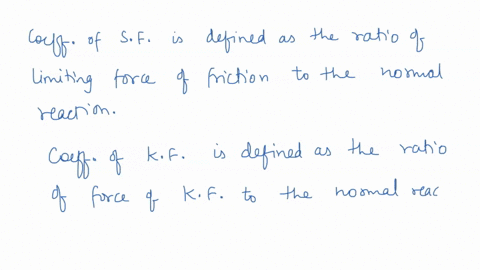 Coeff. of S.F. is defined as the ratio of
limiting force of friction to the normal
reaction.
Coeff. of K.F. is defined as the ratio
of force of K.F. to the normal reac